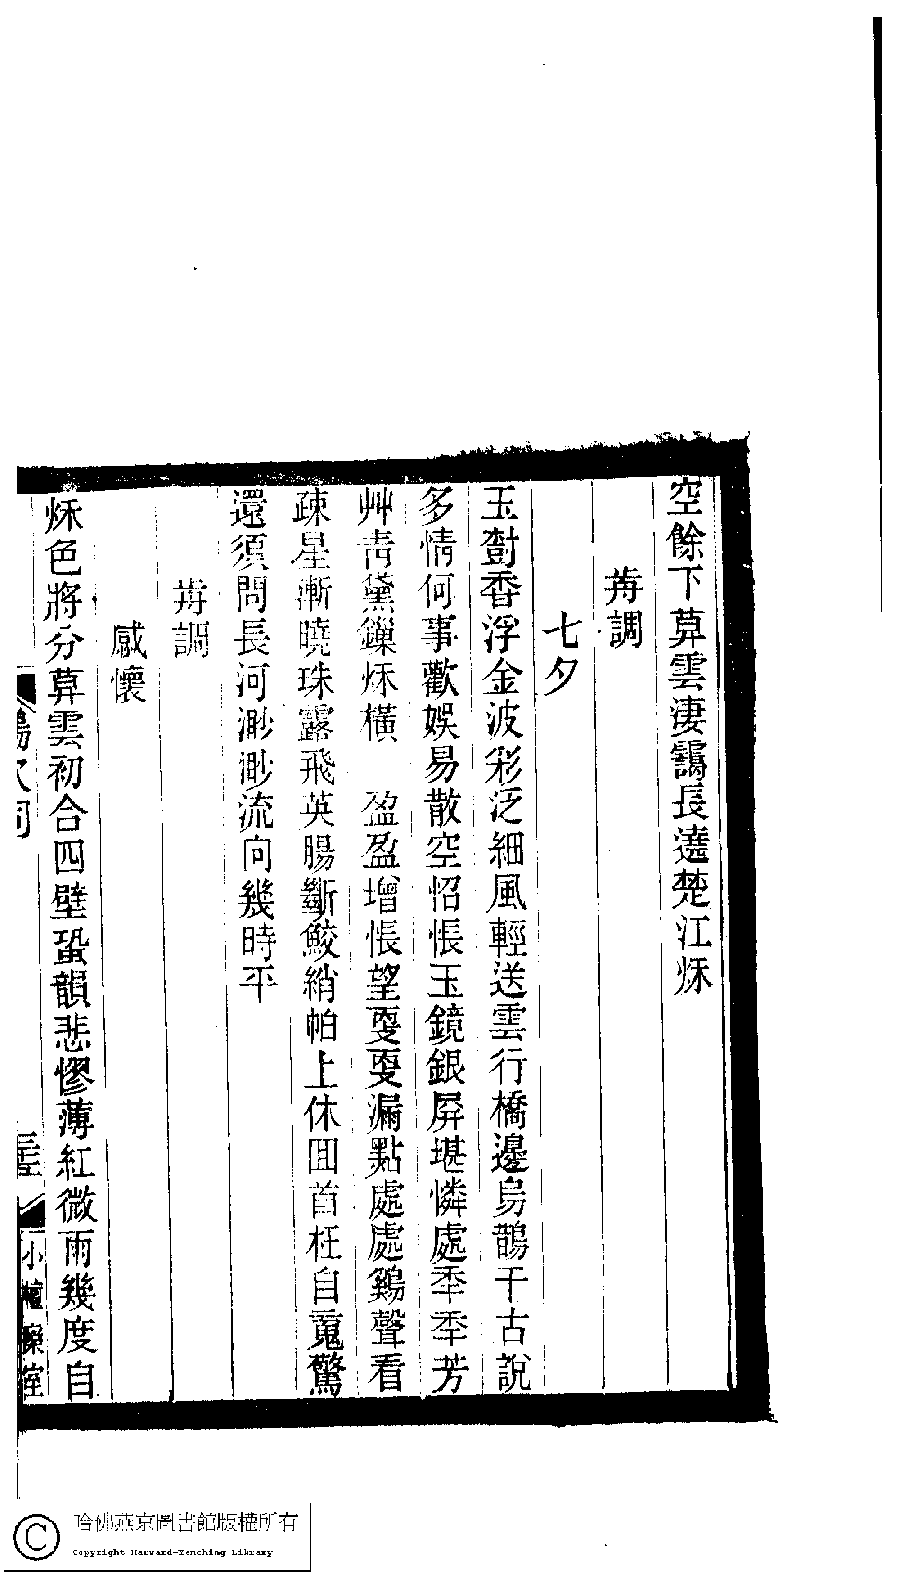 空餘下萛雲淒靄長遶楚江秌
再調
七夕
玉對香浮金波彩泛細風輕送雲行橋邊烏鵲千古說
多情何事歡娛易散空怊悵玉鏡銀屏堪憐處秊秊芳
艸靑黛鏁秌橫　盈盈增悵望㪅㪅漏點處處鷄聲看
疎星漸曉珠露飛英腸斷鮫綃帕上休囬首枉自䰟驚
還須問長河渺渺流向幾時平
再調
感懷
秌色將分萛雲初合四壁蛩韻悲憀薄紅微雨幾度自
小檀欒室
哈佛燕京圖書館版權所有
Copyright Harvard-Yenching Library